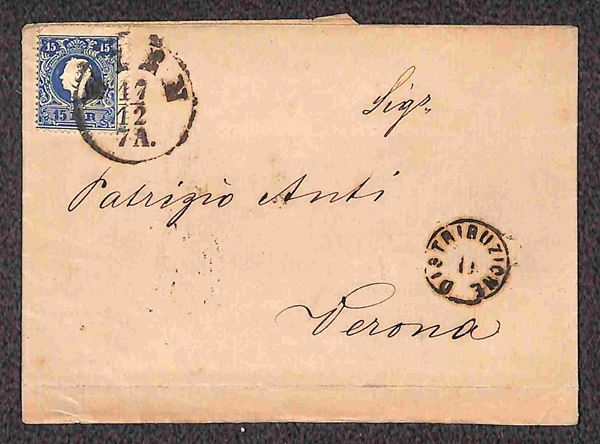 15 15
15 KR
WIEN
17
12
7A.
Sigr
Patrizio Anti
DISTRIBUZIONE
Verona